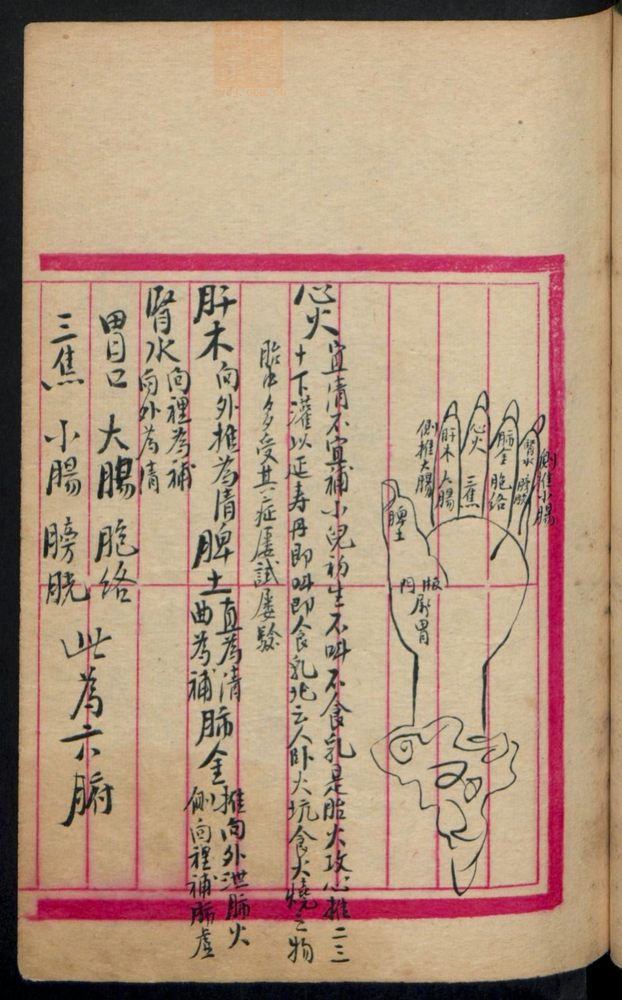 側推小腸
腎水 膀胱
肺金 胞絡
心火 三焦
肝木 大腸
側推大腸
脾土
板門屬胃
心火 宜清不宜補小兒初生不叫不食乳是胎火攻心推二三
十下灌以延寿丹即叫即食乳化云人卧火坑食火燒之物
胎中多受其症屢試屢驗
肝木 向外推為清 脾土 直為清 曲為補 肺金 推向外泄肺火 側向裡補肺虛
腎水 向裡為補 向外為清
胃口 大腸 胞絡
三焦 小腸 膀胱 此為六腑